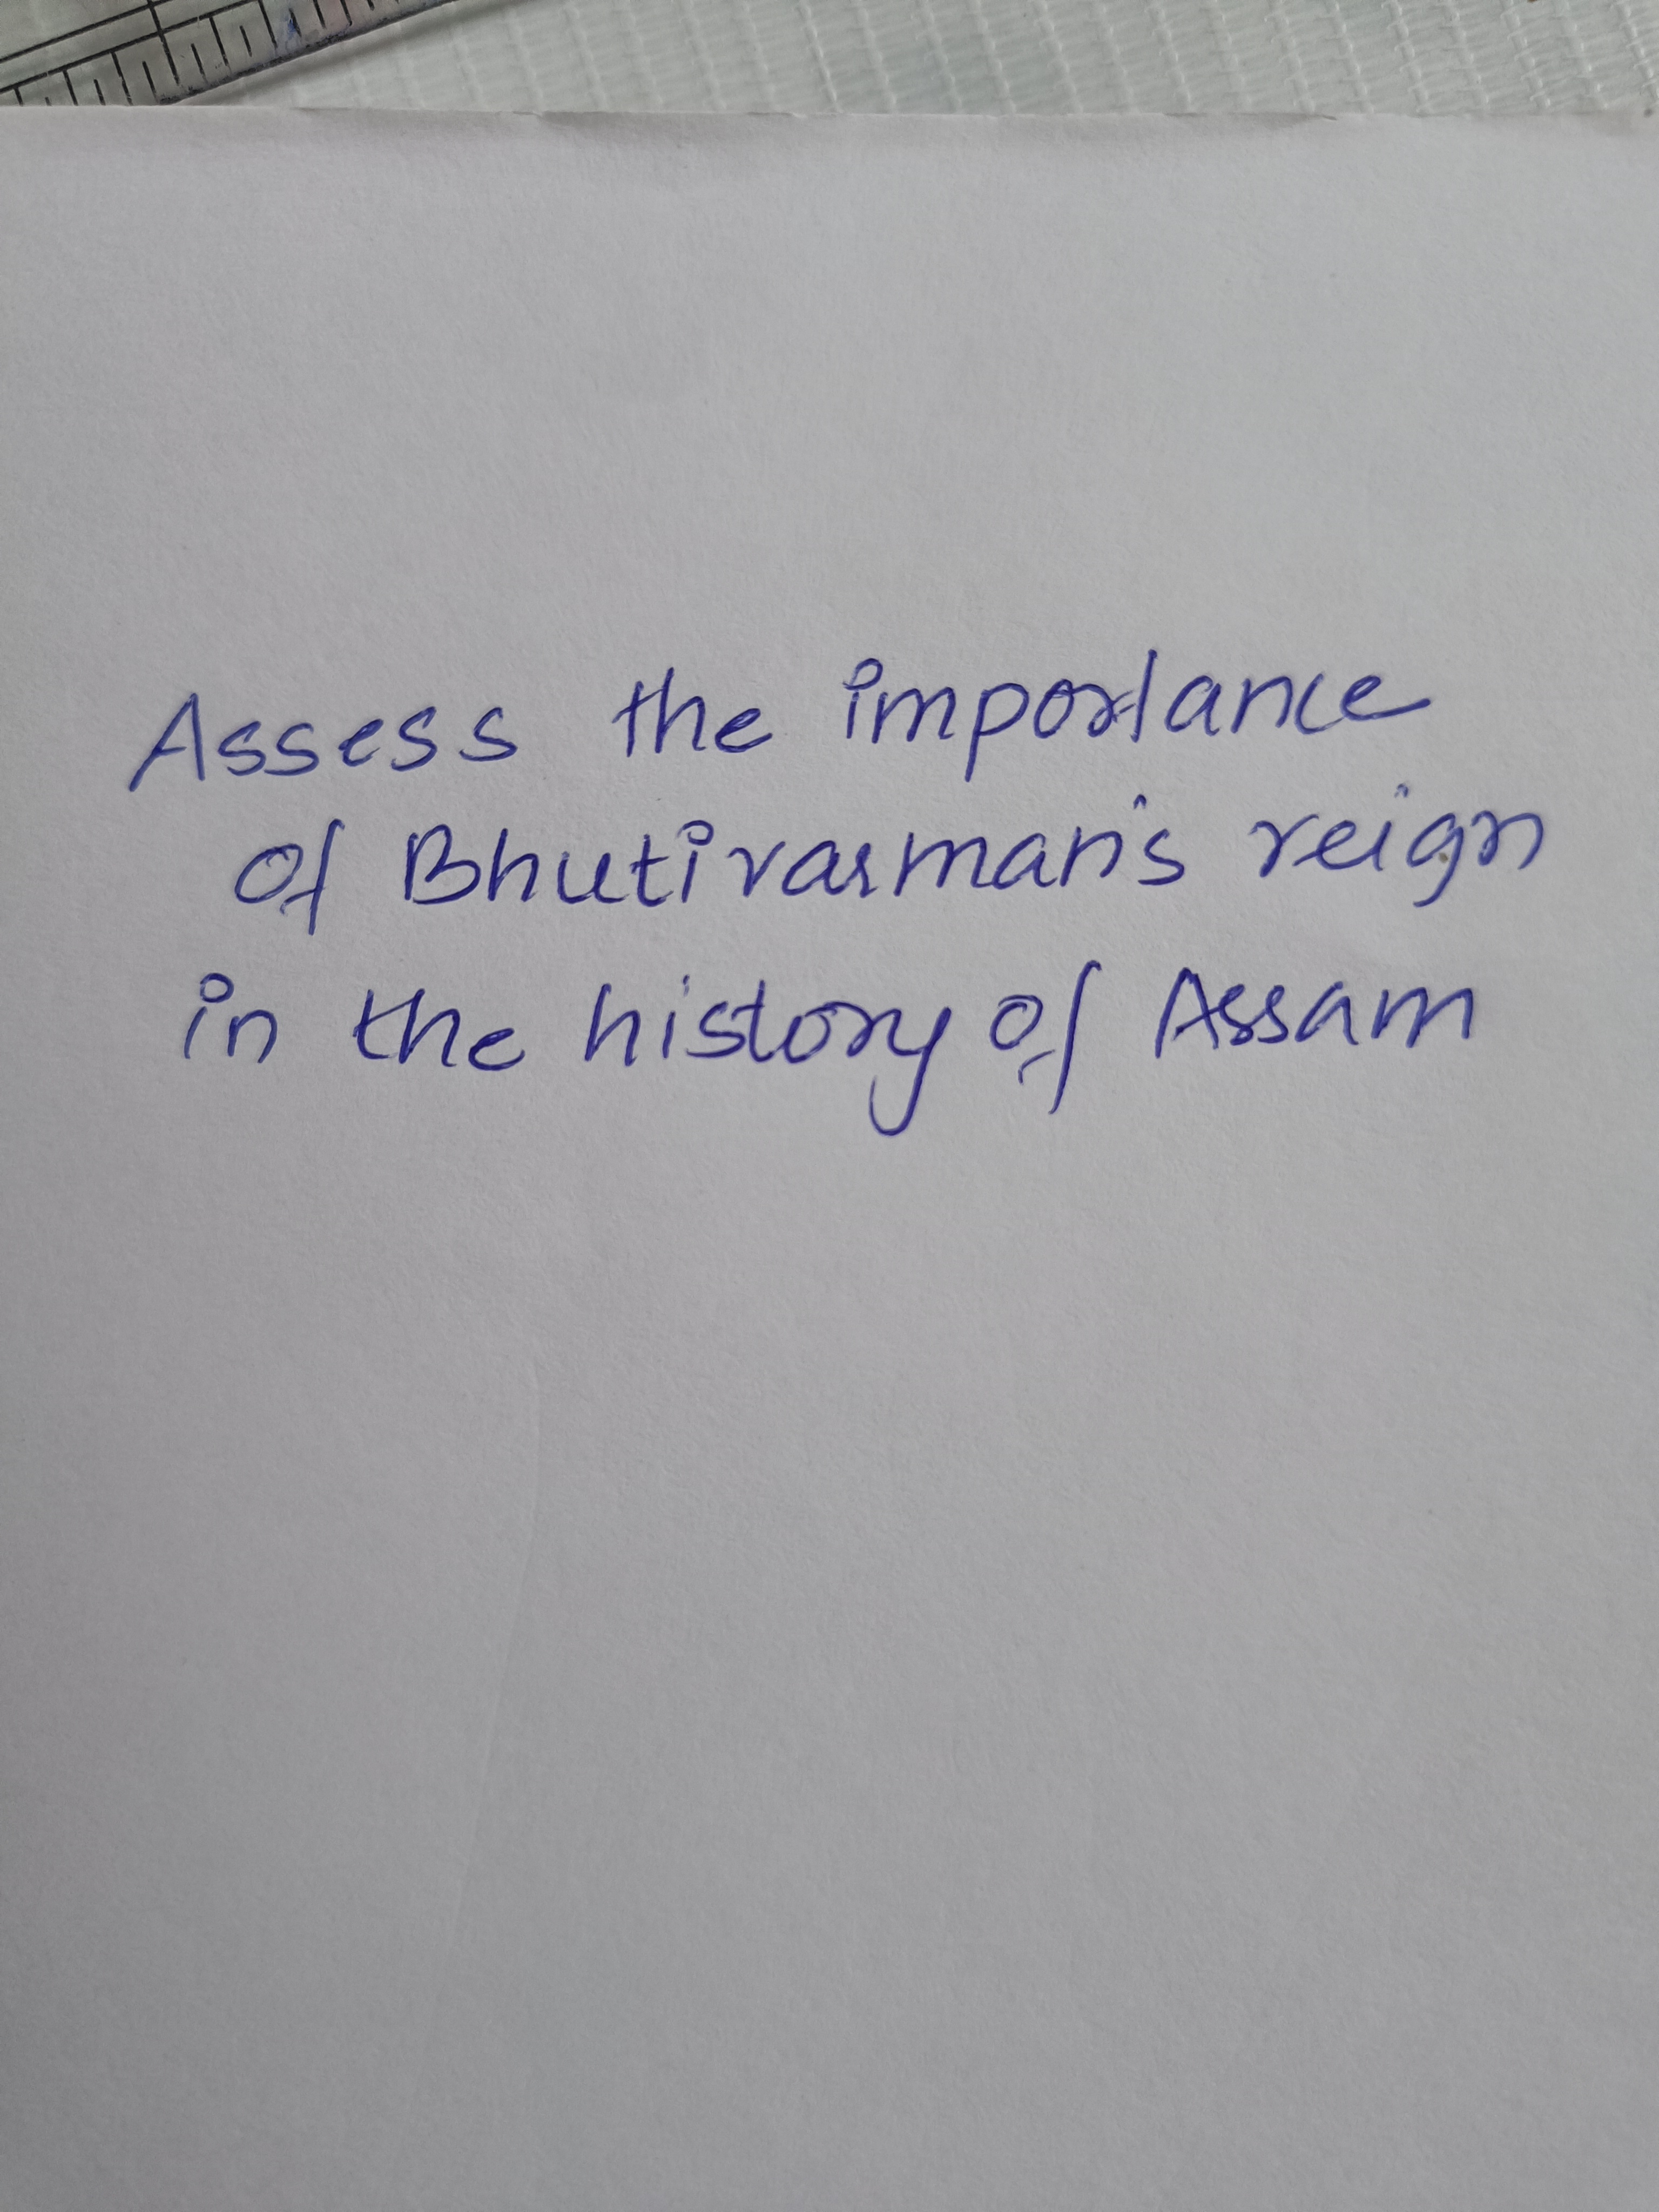 Assess the importance
of Bhutivarman's reign
in the history of Assam